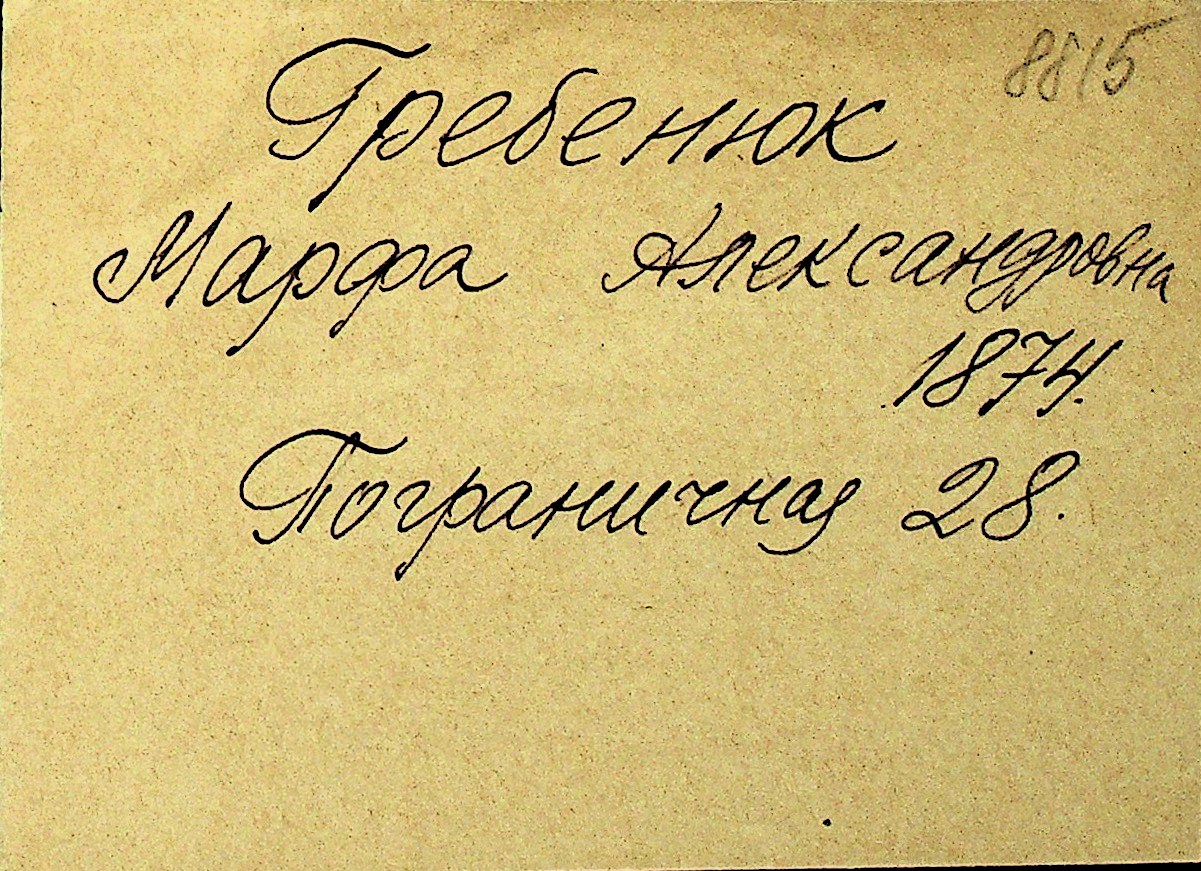 8815
Гребенюк
Марфа Александровна
1874.
Пограничная 28.